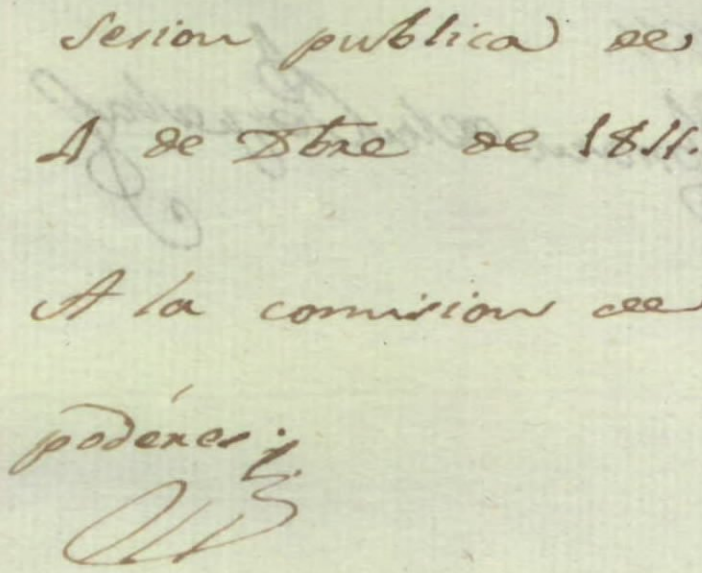 Sesion publica de
4 de Dbre de 1811.
A la comision de
podéres.